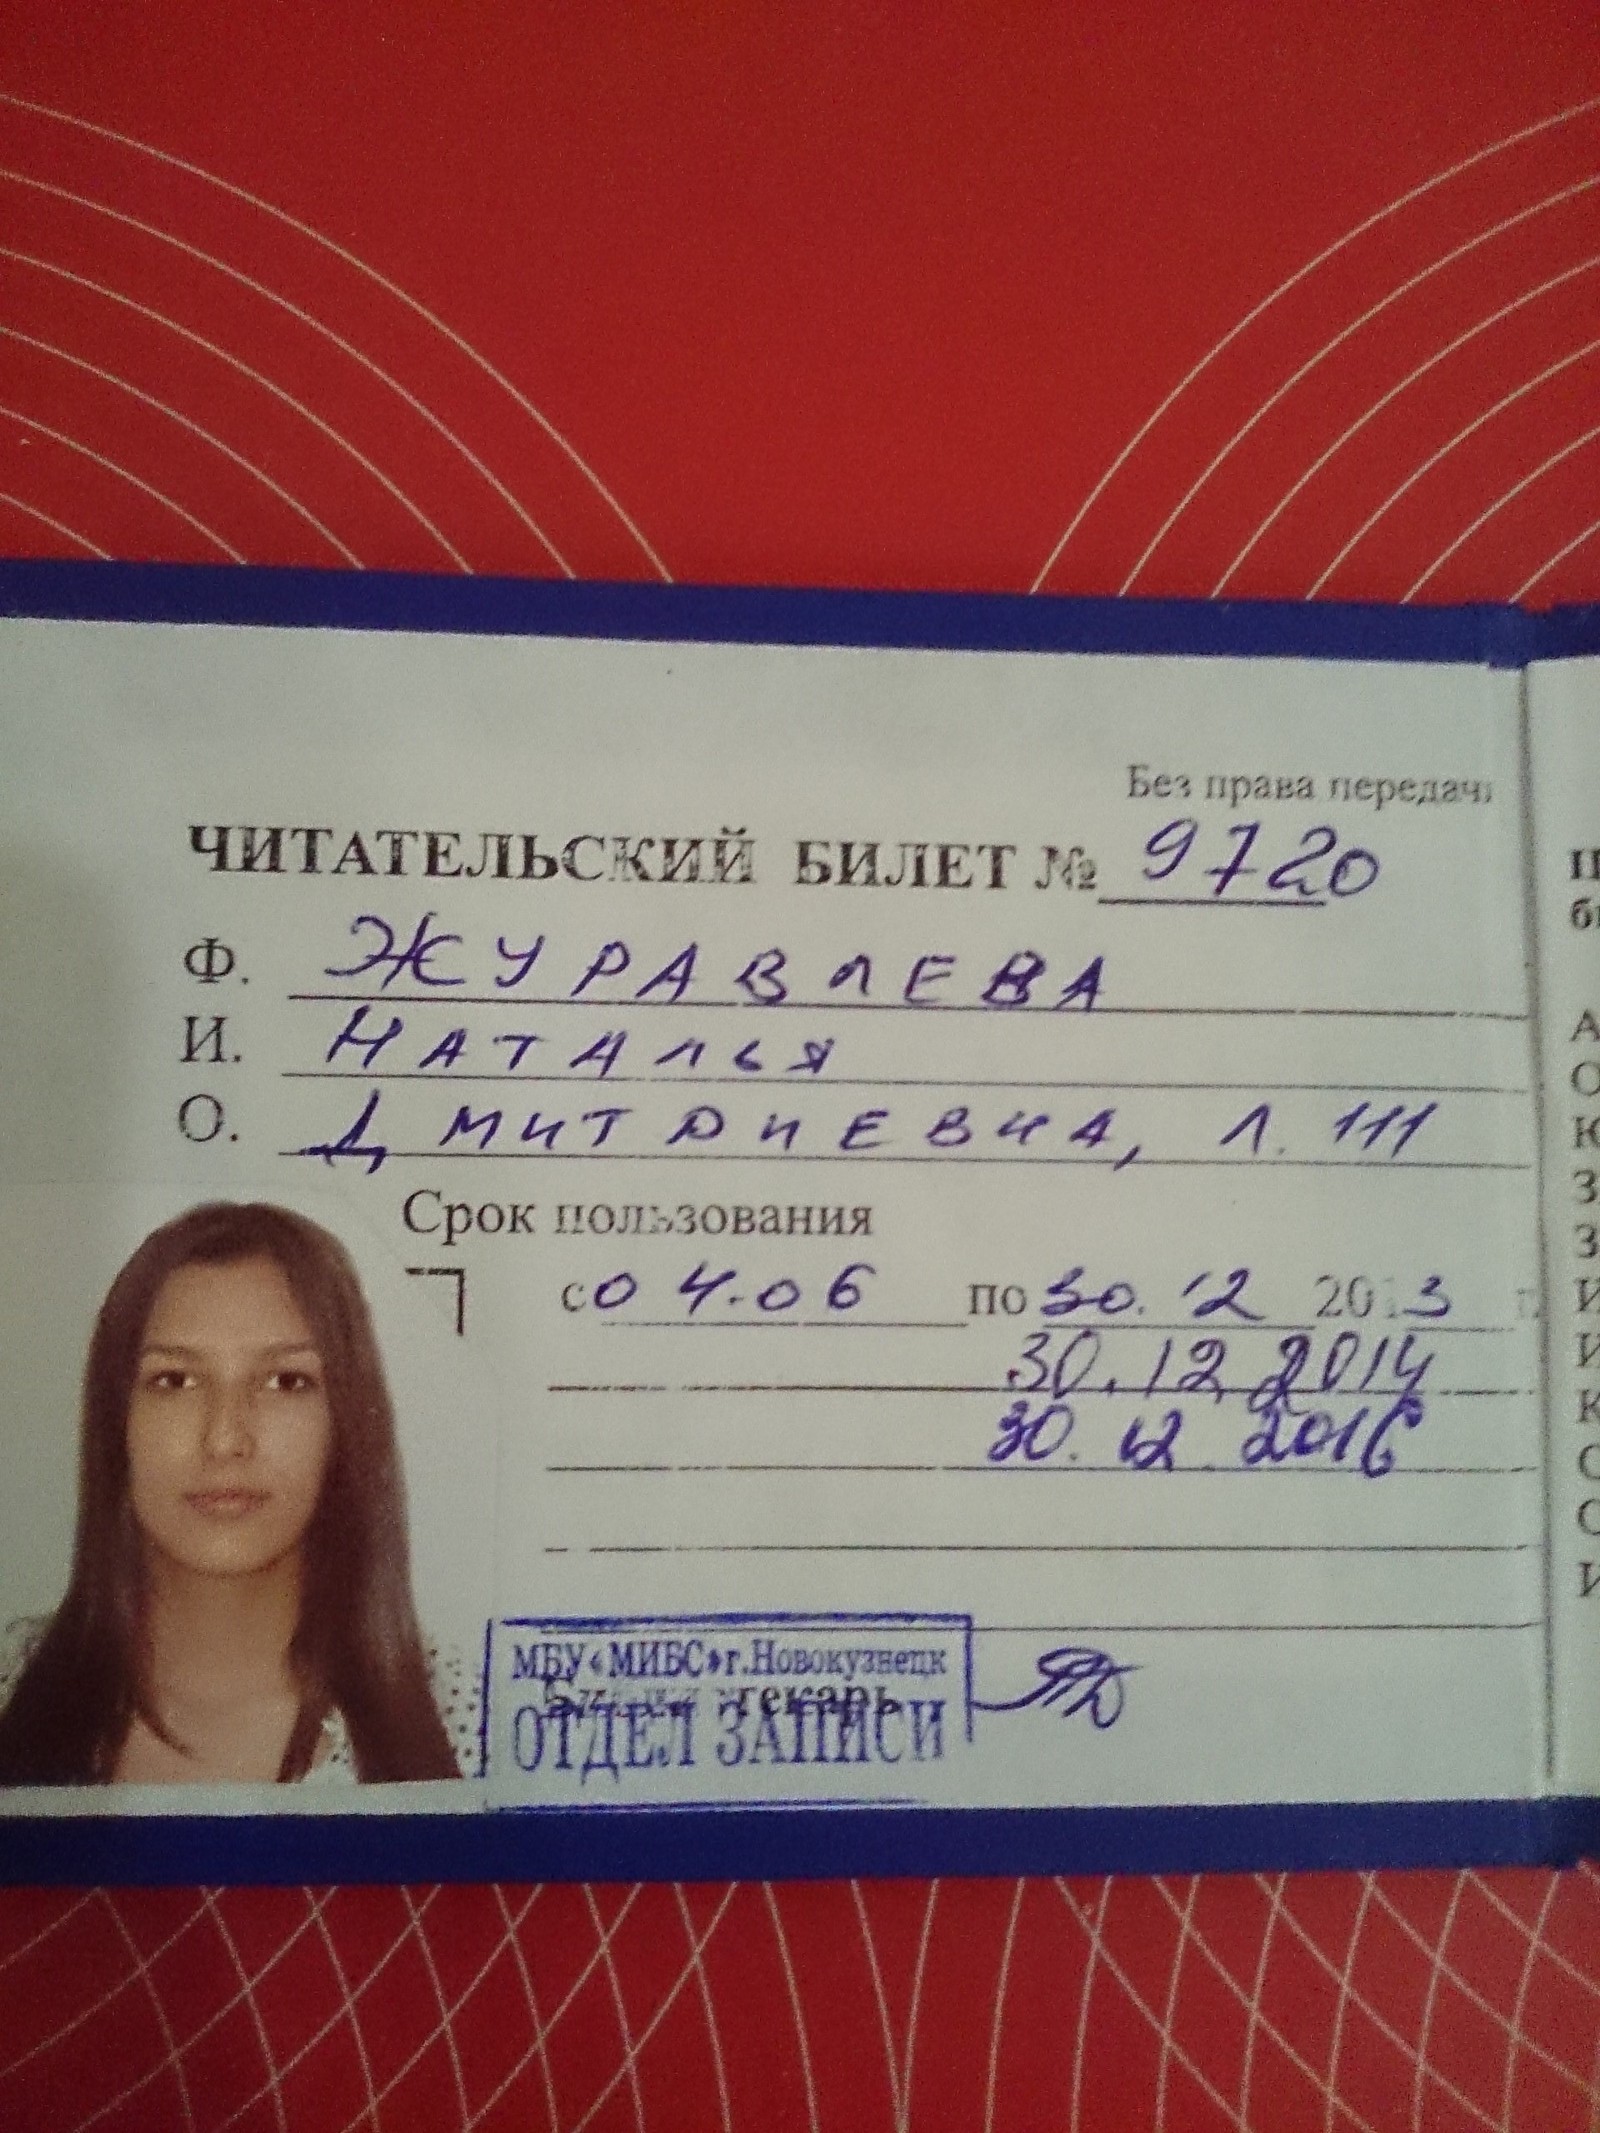 Без права передачи
ЧИТАТЕЛЬСКИЙ БИЛЕТ № 9720
Ф. ЖУРАВЛЕВА
И. НАТАЛЬЯ
О. ДМИТРИЕВНА, Л. 111
Срок пользования
с 04.06 по 30.12 2013 г.
30.12.2014
30.12.2016
МБУ «МИБС» г.Новокузнецк
Библиотекарь
ОТДЕЛ ЗАПИСИ